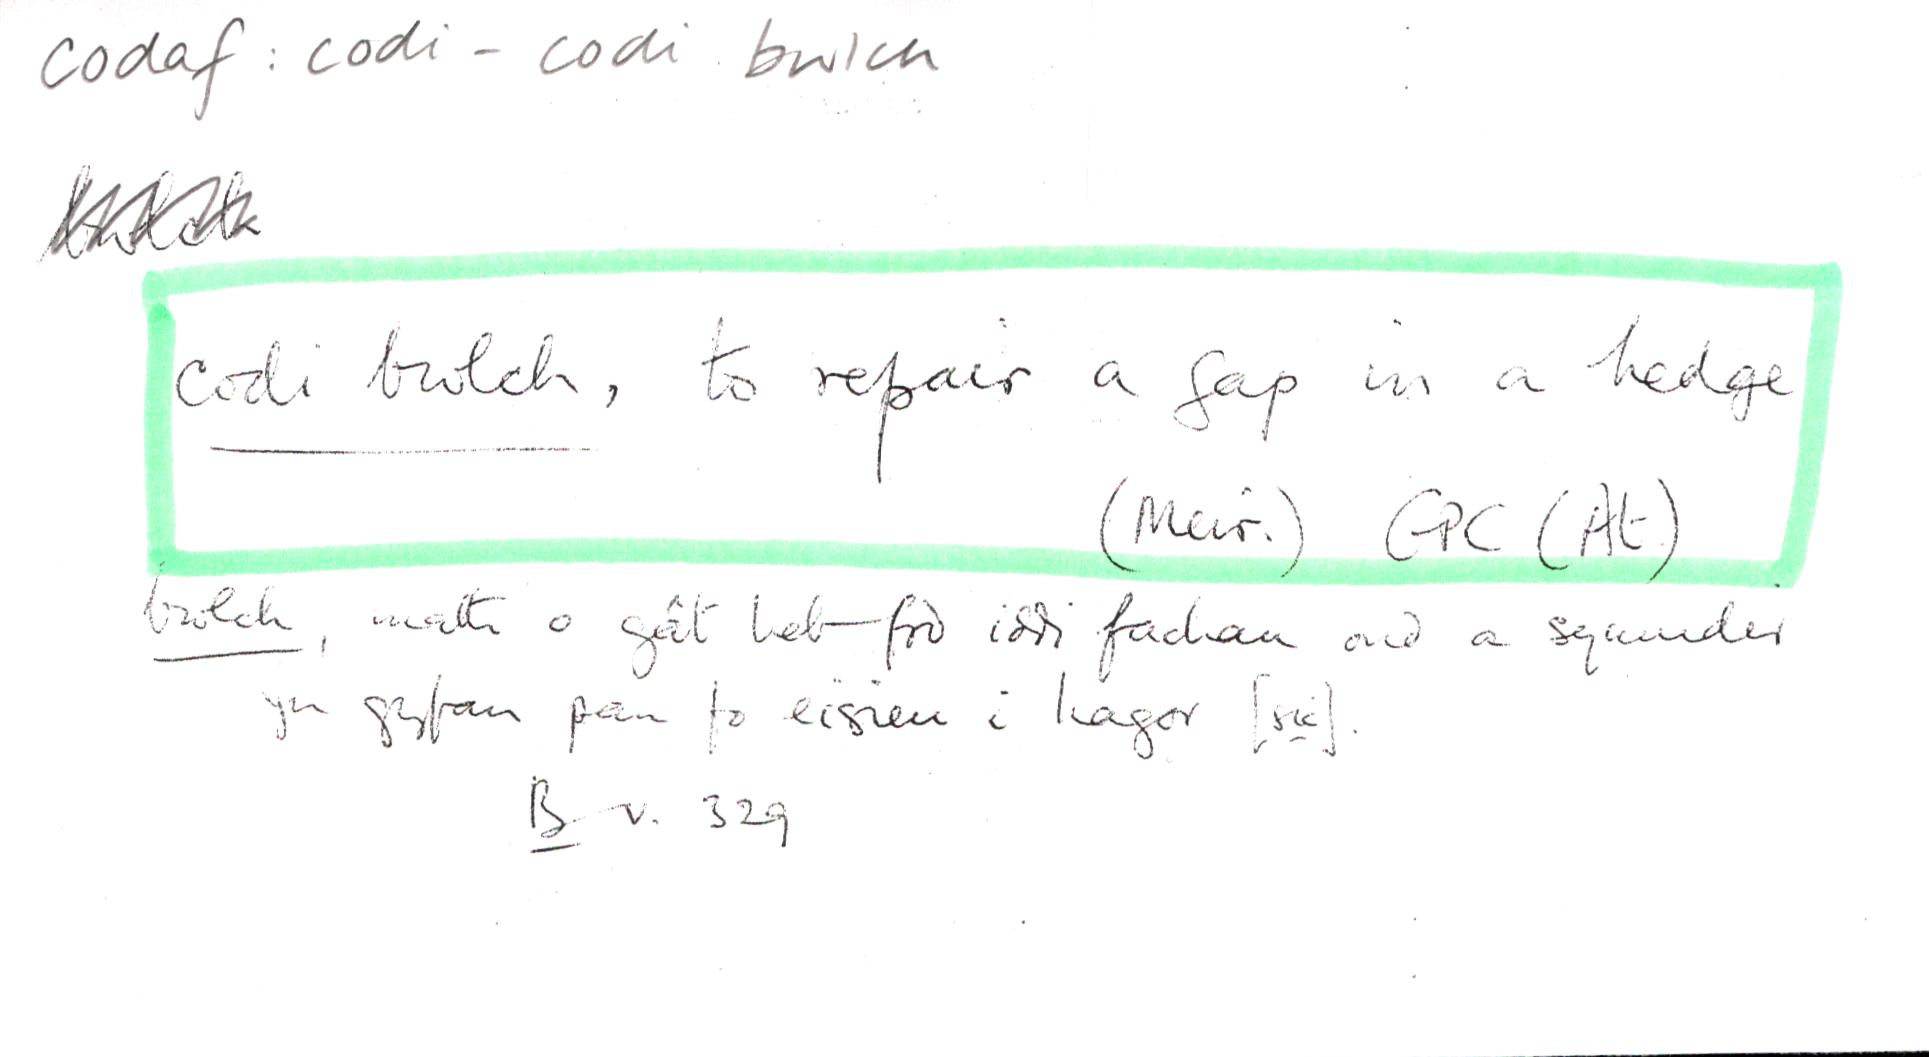 codaf: codi - codi bwlch
codi bwlch, to repair a gap in a hedge
(Meir.) GPC (At.)
bwlch, math o gât heb fod iddi fachau ond a symudir
yn gyfan pan fo eisieu i hagor [sic].
B v. 329